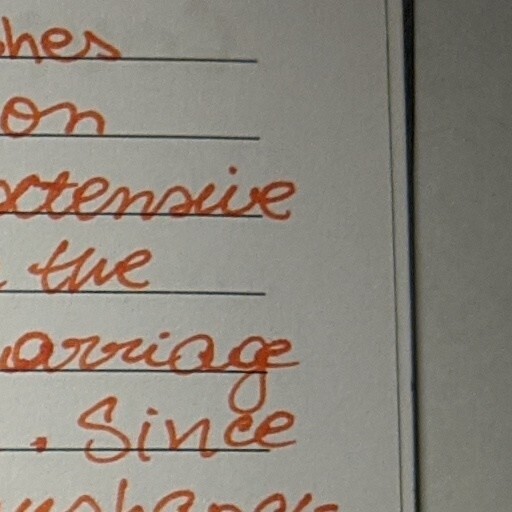 hes
on
xtensive
the
arriage
. Since